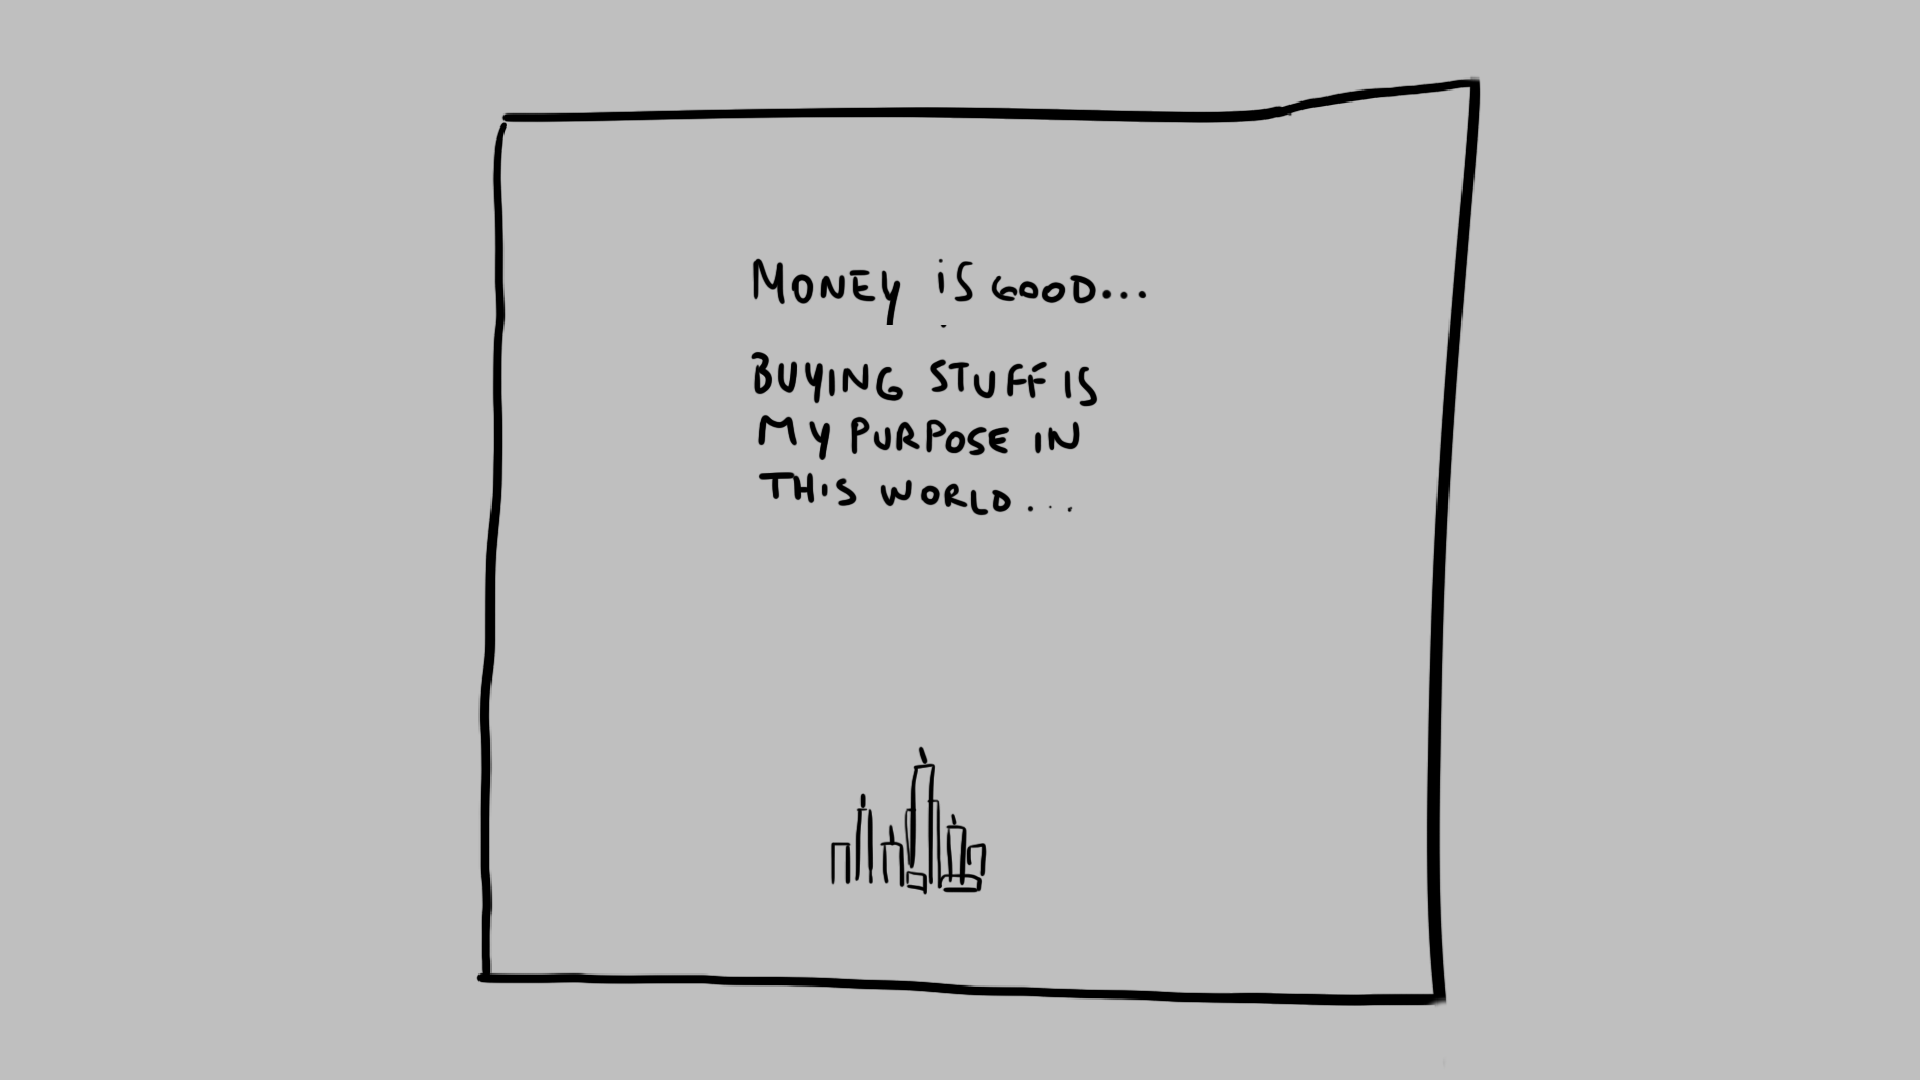 MONEY iS GOOD...
BUYING STUFF IS
MY PURPOSE IN
THIS WORLD...